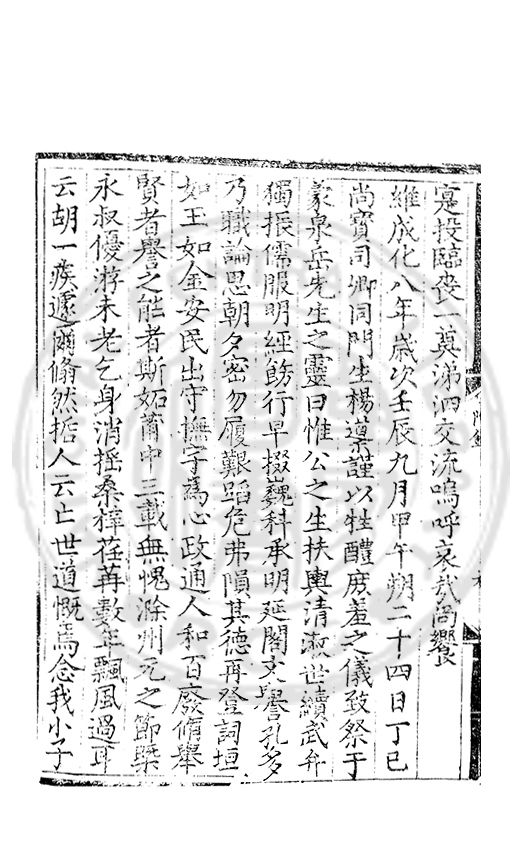 寔投臨喪一奠涕泗交流嗚呼哀哉尚饗
維成化八年歲次壬辰九月甲午朔二十四日丁巳
尚寳司卿同門生楊導謹以牲醴庻羞之儀致祭于
蒙泉岳先生之靈曰惟公之生扶輿清淑世續武弁
獨振儒服明經飭行早掇巍科承明延閣文譽孔多
乃職論思朝夕密勿履艱蹈危弗隕其德再登詞垣
如玉如金安民出守撫字為心政通人和百廢脩舉
賢者譽之能者斯妬莆中三載無愧滁州元之節槩
永叔優游未老乞身消摇桑梓荏苒數年飄風過耳
云胡一疾遽爾翛然哲人云亡世道慨焉念我小子
附錄